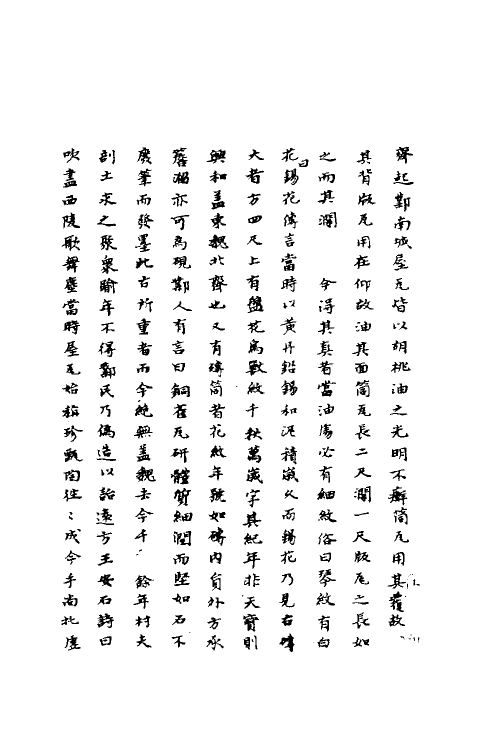 齊起鄴南城屋瓦皆以胡桃油之光明不癬筒瓦用其覆故
其背版瓦用在仰故油其面筒瓦長二尺濶一尺版瓦之長如
之而其濶 今得其真者當油處必有細紋俗曰琴紋有白
花曰錫花傳言當時以黄丹鉛錫和泥積歲久而錫花乃見古磚
大者方四尺上有盤花鳥獸紋千秋萬歲字其紀年非天寶則
興和盖東魏北齊也又有磚筒者花紋年號如磚内員外方承
簷溜亦可為硯鄴人有言曰銅雀瓦研體質細潤而堅如石不
廢筆而發墨此古所重者而今絶無盖魏去今千餘年村夫
刮土求之聚衆踰年不得鄴民乃偽造以給遠方王安石詩曰
吹盡西陵歌舞塵當時屋瓦始稱珍甄陶往〻成今手尚托虛